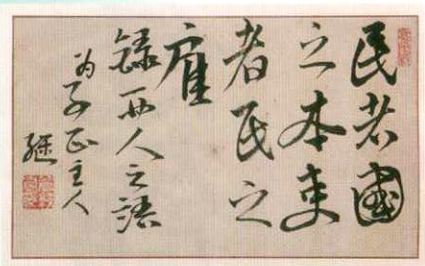 民者國
之本吏
者民之
雇
錄人之語
為子正主人
継